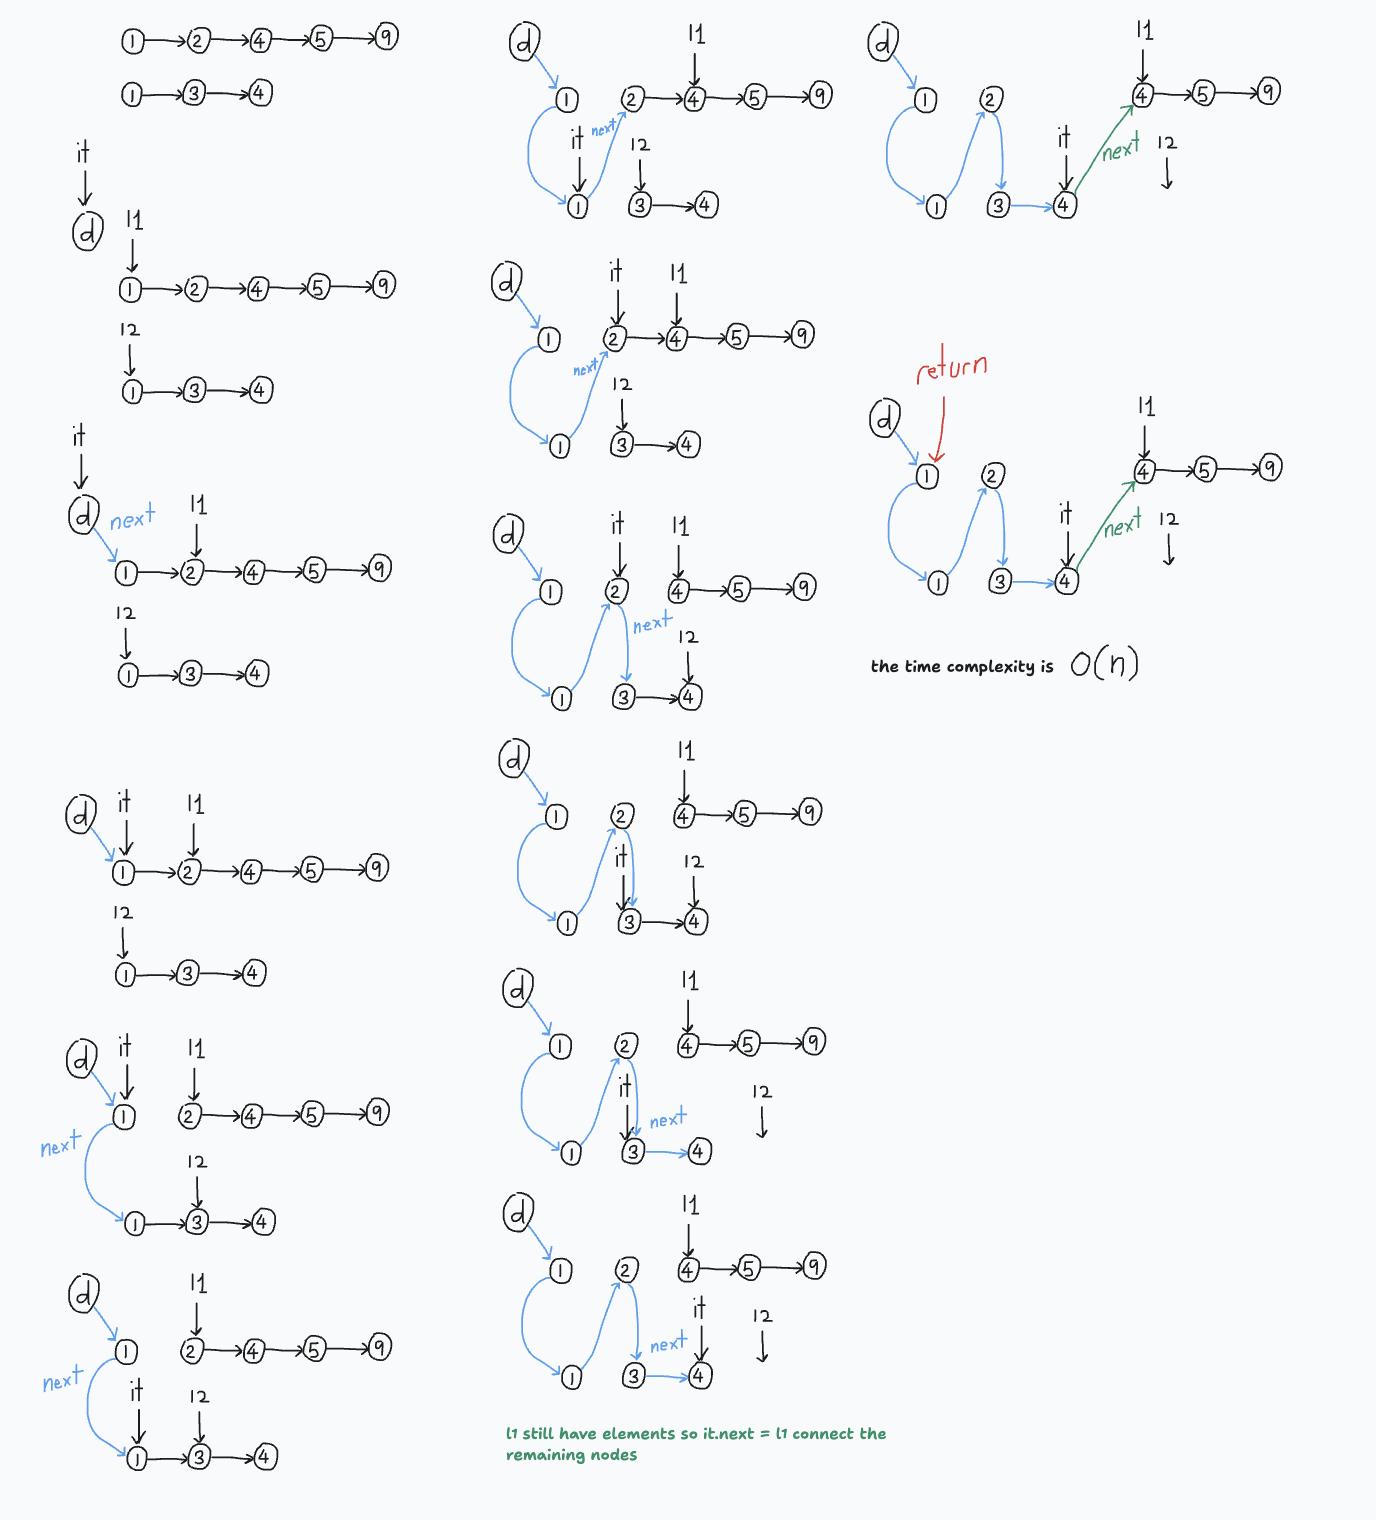 1 2 4 5 9
1 3 4
it
d
l1
1 2 4 5 9
l2
1 3 4
it
d next l1
1 2 4 5 9
l2
1 3 4
d it l1
1 2 4 5 9
l2
1 3 4
d it l1
1 2 4 5 9
next
l2
1 3 4
d l1
1 2 4 5 9
next
it l2
1 3 4
d l1
1 2 4 5 9
it next l2
1 3 4
d it l1
1 2 4 5 9
next
l2
1 3 4
d it l1
1 2 4 5 9
next
l2
1 3 4
d l1
1 2 4 5 9
it l2
1 3 4
d l1
1 2 4 5 9
it next l2
1 3 4
d l1
1 2 4 5 9
it l2
next
1 3 4
l1 still have elements so it.next = l1 connect the
remaining nodes
d l1
1 2 4 5 9
it next l2
1 3 4
return
d l1
1 2 4 5 9
it next l2
1 3 4
the time complexity is O(n)